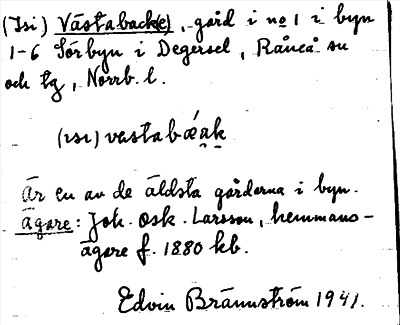 (Isi) Västaback(e), gård i no 1 i byn
1-6 Sörbyn i Degersel, Råneå sn
och tg, Norrb. l.
(ɪsɪ) vastabǽa̠k̠
Är en av de äldsta gårdarna i byn.
Ägare: Joh. Osk. Larsson, hemmans-
ägare f. 1880 kb.
Edvin Brännström 1941.